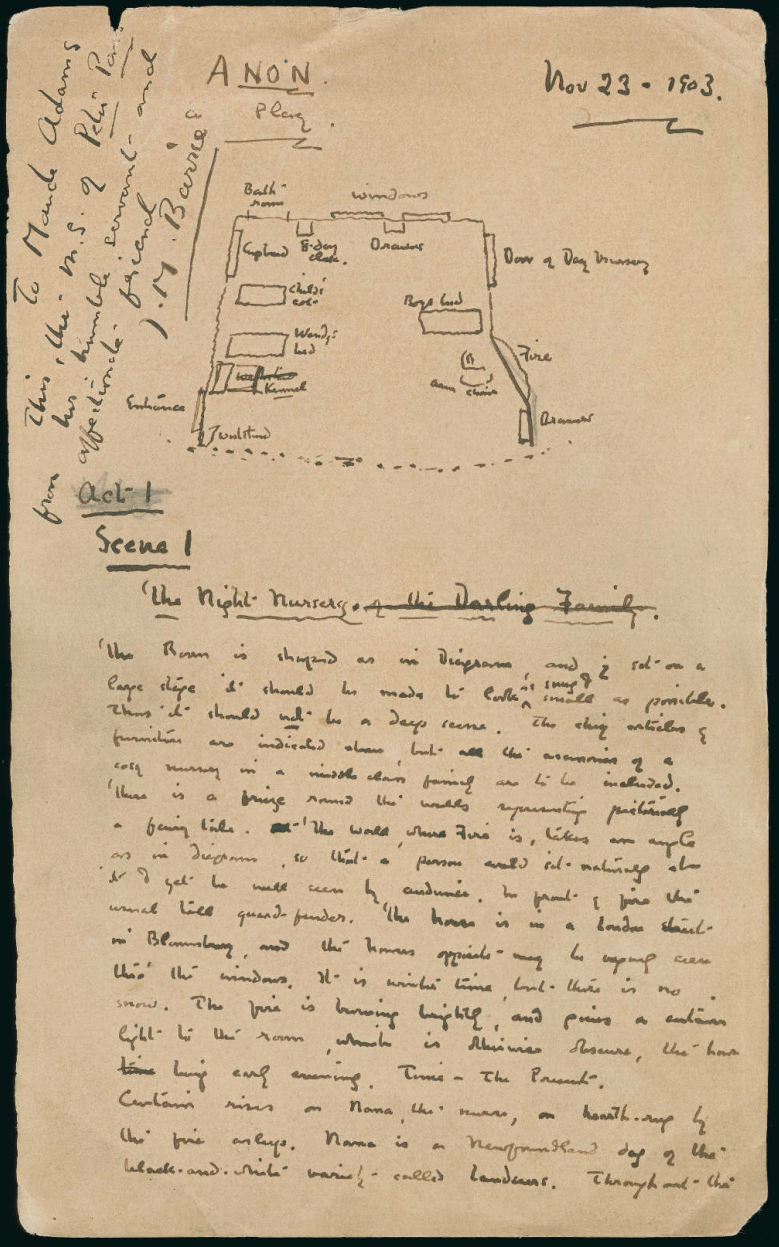 ANON.
a
Play.
Nov 23 - 1903.
To Maude Adams
This, the M.S. of Peter Pan
from her humble servant and
affectionate friend
J. M. Barrie
Bath-
room
windows
Cupboard
8-day
clock.
Drawers
Door of Day Nursery
Child's
cot
Boys bed
Wendy's
bed
Fire
arm chair
Kennel
Entrance
Drawers
Act 1
Scene 1
The Night Nursery of the Darling Family.
The Room is shaped as in Diagram, and if set on a
large stage it should be made to look as snug & small as possible.
Thus it should not be a deep scene. The chief articles of
furniture are indicated above, but all the accessories of a
cosy nursery in a middle class family are to be included.
There is a frieze round the walls representing pictorially
a fairy tale. The wall, where Fire is, takes an angle
as in diagram, so that a person could sit naturally at
it & yet be well seen by audience. In front of fire the
usual tall guard-fender. The house is in a London street
in Bloomsbury, and the houses opposite may be vaguely seen
thro' the windows. It is winter time, but there is no
snow. The fire is burning brightly, and gives a certain
light to the room, which is otherwise obscure, the hour
time being early evening. Time - The Present.
Curtain rises on Nana, the nurse, on hearth-rug by
the fire asleep. Nana is a Newfoundland dog of the
black-and-white variety called Landseer. Throughout the